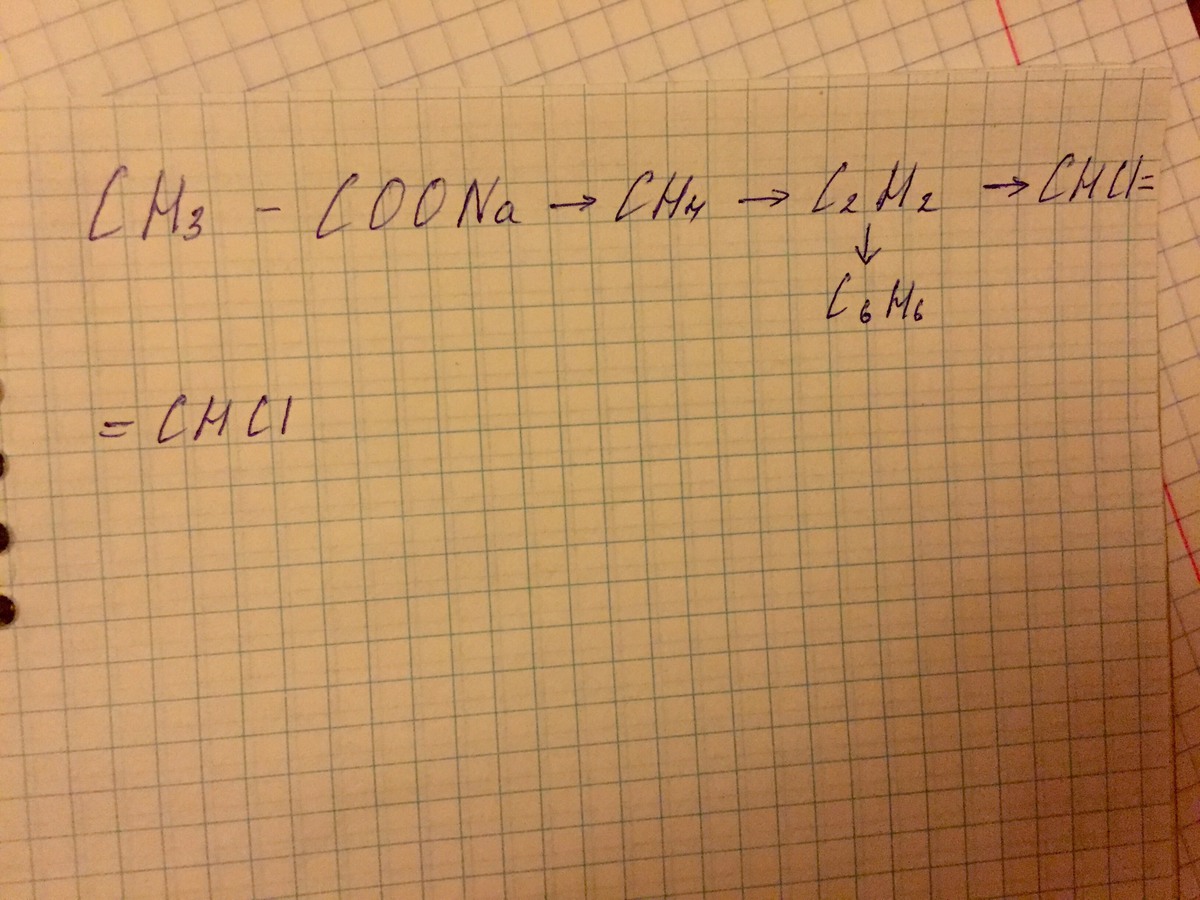 CH₃ - COONa → CH₄ → C₂H₂ → CHCl=
↓
C₆H₆
= CHCl